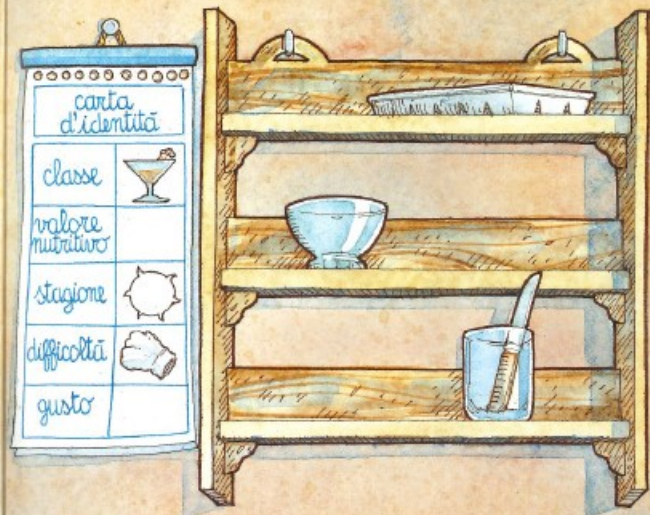 carta
d'identità
classe
valore
nutritivo
stagione
difficoltà
gusto